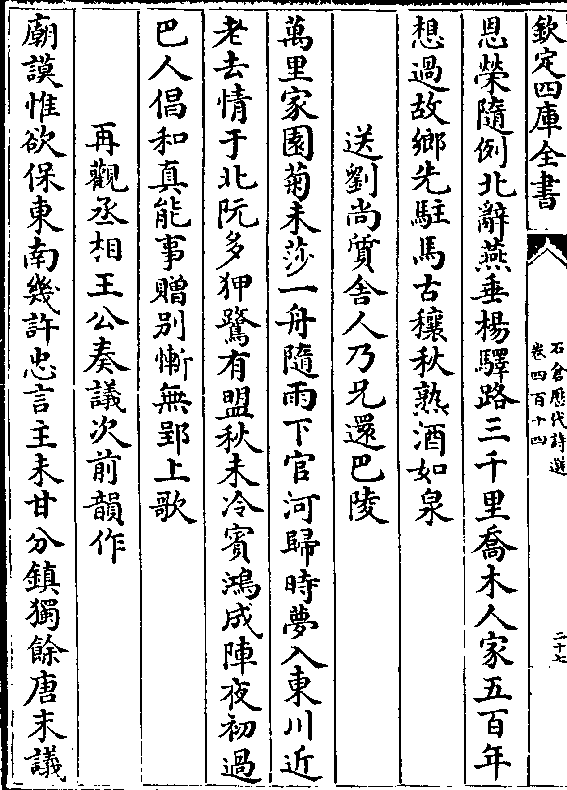 欽定四庫全書
石倉歷代詩選
卷四百十四
二十七
恩榮隨例北辭燕垂楊驛路三千里喬木人家五百年
想過故鄉先駐馬古穰秋熟酒如泉
送劉尚質舍人乃兄還巴陵
萬里家園菊未莎一舟隨雨下官河歸時夢入東川近
老去情于北阮多狎鷺有盟秋未冷賓鴻成陣夜初過
巴人倡和真能事贈別慚無郢上歌
再觀丞相王公奏議次前韻作
廟謨惟欲保東南幾許忠言主未甘分鎮獨餘唐末議